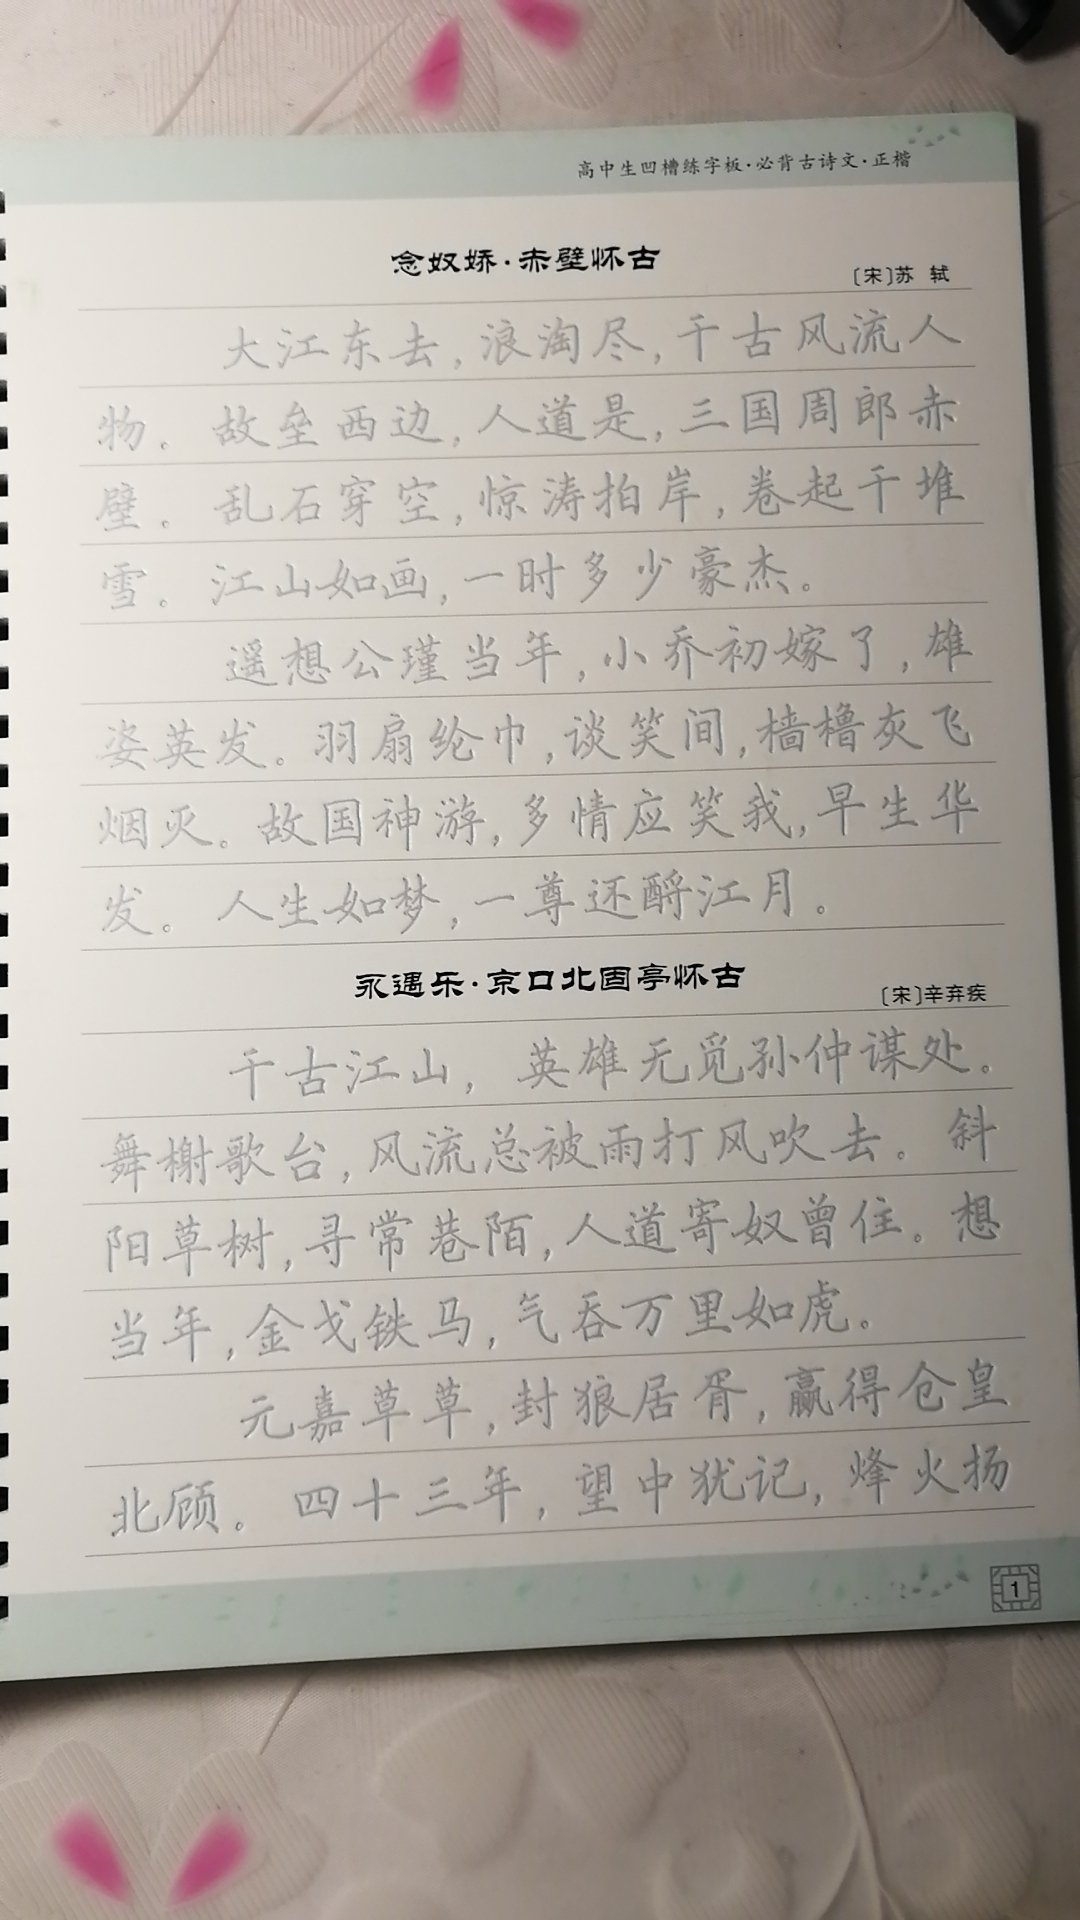 高中生凹槽练字板·必背古诗文·正楷
念奴娇·赤壁怀古
〔宋〕苏 轼
大江东去,浪淘尽,千古风流人
物。故垒西边,人道是,三国周郎赤
壁。乱石穿空,惊涛拍岸,卷起千堆
雪。江山如画,一时多少豪杰。
遥想公瑾当年,小乔初嫁了,雄
姿英发。羽扇纶巾,谈笑间,樯橹灰飞
烟灭。故国神游,多情应笑我,早生华
发。人生如梦,一尊还酹江月。
永遇乐·京口北固亭怀古
〔宋〕辛弃疾
千古江山,英雄无觅孙仲谋处。
舞榭歌台,风流总被雨打风吹去。斜
阳草树,寻常巷陌,人道寄奴曾住。想
当年,金戈铁马,气吞万里如虎。
元嘉草草,封狼居胥,赢得仓皇
北顾。四十三年,望中犹记,烽火扬
1